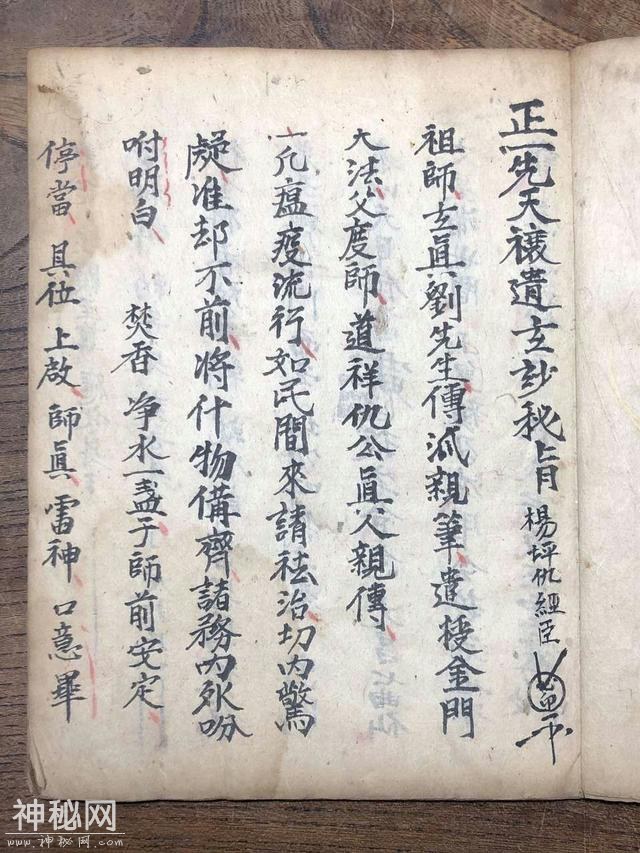 正一先天禳遣玄妙秘旨 楊坪仇經臣
祖師玄眞劉先生傳派親筆遣授金門
大法父度師道祥仇公眞人親傳
一凡瘟疫流行如民間來請祛治切内驚
疑准却不前将什物備齊諸務内外吩
咐明白 焚香净水一盞于師前安定
停當 具位 上啟 師眞 雷神 口意畢
神秘网
www.神秘网.com